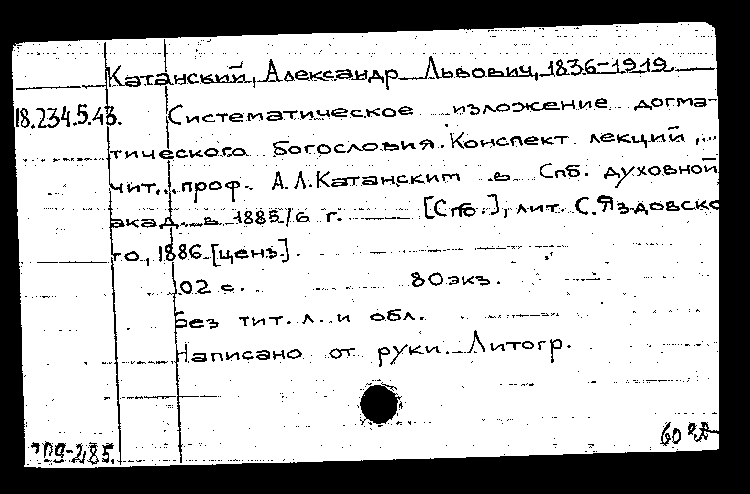 Катанский, Александр Львович, 1836-1919
18.234.5.43. Систематическое изложение догма-
тического богословия. Конспект лекций,...
чит... проф. А.Л.Катанским в Спб. духовной
акад. в 1885/6 г. [Спб.], лит. С.Яздовско
го, 1886 [ценз].
102 с. 80 экз.
Без тит. л. и обл.
Написано от руки. Литогр.
709-485.